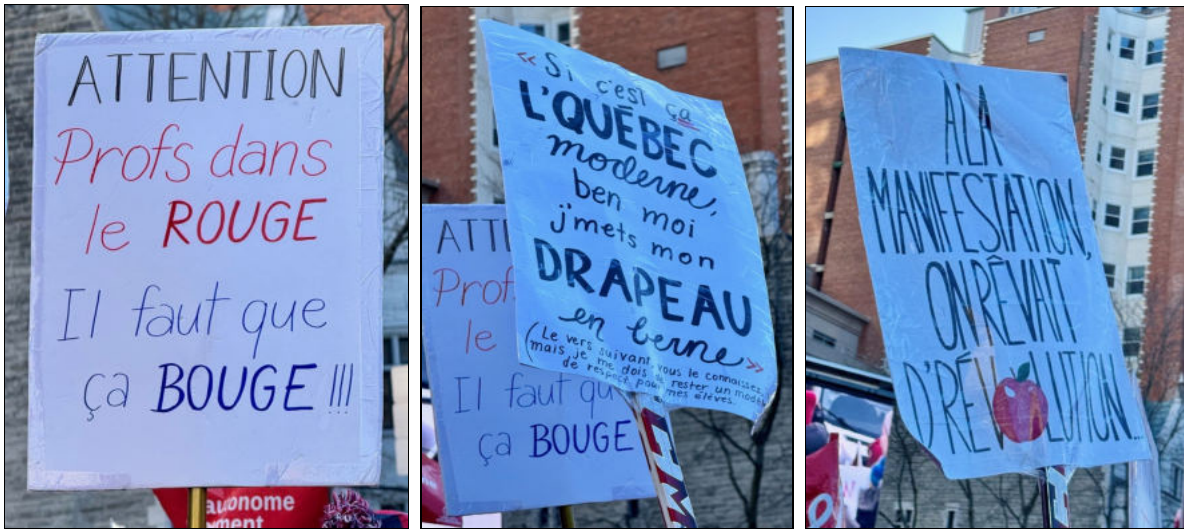 ATTENTION
Profs dans
le ROUGE
Il faut que
ça BOUGE !!!
autonome
ment
« Si c'est ça
L'QUÉBEC
moderne,
ben moi
j'mets mon
DRAPEAU
en berne »
(Le vers suivant vous le connaissez
mais je me dois de rester un modèle
de respect pour mes élèves.
ATT
Prof
le
Il faut qu
ça BOUGE
À LA
MANIFESTATION,
ON RÊVAIT
D'RÉVOLUTION...